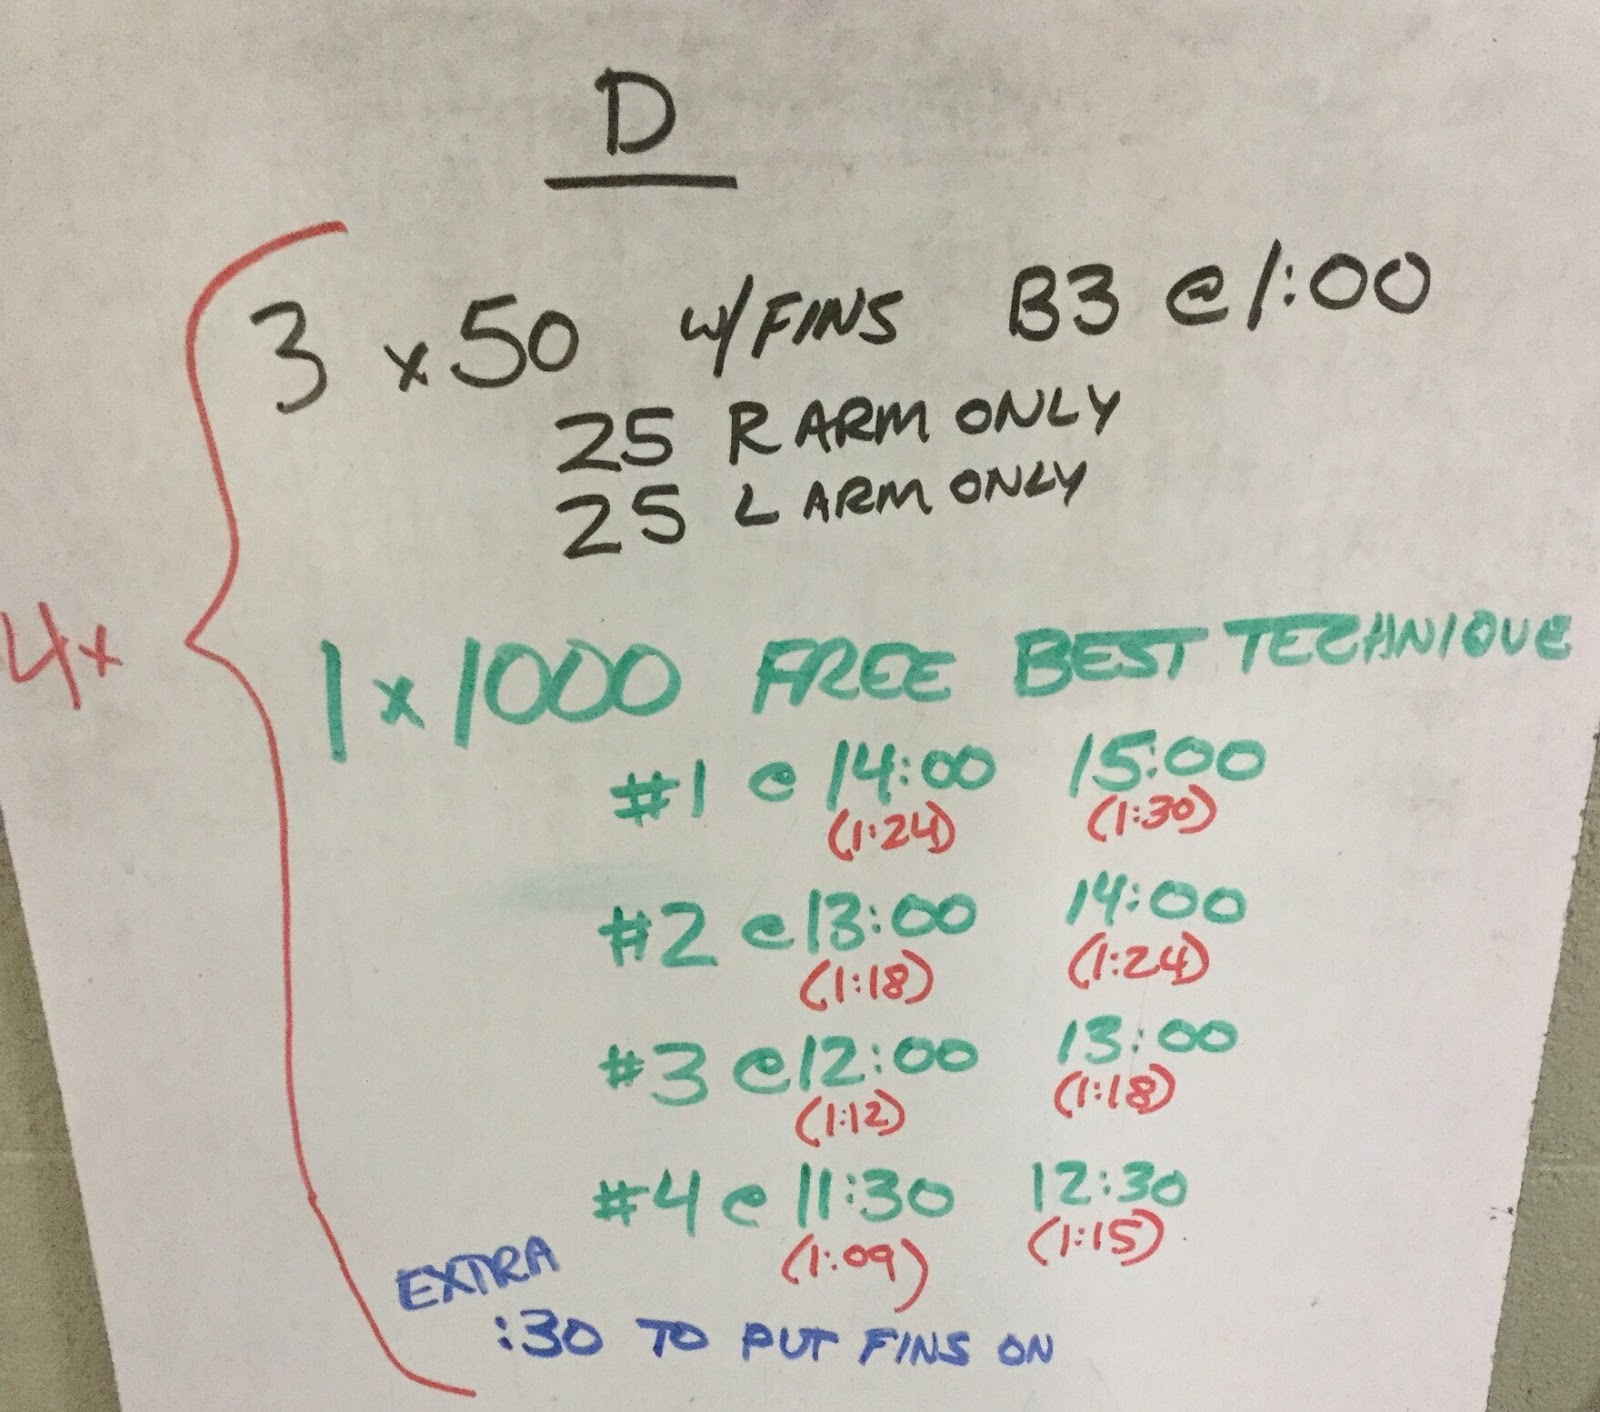 D
3 x 50 w/ FINS B3 @ 1:00
25 R ARM ONLY
25 L ARM ONLY
4x
1 x 1000 FREE BEST TECHNIQUE
#1 @ 14:00 15:00
(1:24) (1:30)
#2 @ 13:00 14:00
(1:18) (1:24)
#3 @ 12:00 13:00
(1:12) (1:18)
#4 @ 11:30 12:30
(1:09) (1:15)
EXTRA
:30 TO PUT FINS ON